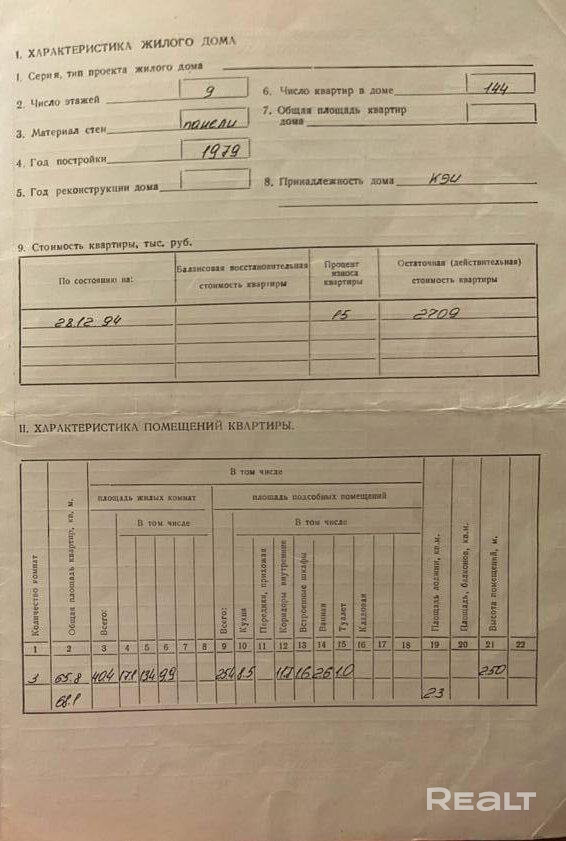 I. ХАРАКТЕРИСТИКА ЖИЛОГО ДОМА
1. Серия, тип проекта жилого дома
2. Число этажей 9
3. Материал стен панели
4. Год постройки 1979
5. Год реконструкции дома
6. Число квартир в доме 144
7. Общая площадь квартир
дома
8. Принадлежность дома КЭЧ
9. Стоимость квартиры, тыс. руб.
По состоянию на: Балансовая восстановительная стоимость квартиры Процент износа квартиры Остаточная (действительная) стоимость квартиры
28.12.94 15 2709
II. ХАРАКТЕРИСТИКА ПОМЕЩЕНИЙ КВАРТИРЫ.
В том числе
площадь жилых комнат площадь подсобных помещений
В том числе В том числе
Количество комнат Общая площадь квартир, кв. м. Всего: Всего: Кухня Передняя, прихожая Коридоры внутренние Встроенные шкафы Ванная Туалет Кладовая Площадь лоджии, кв.м. Площадь, балконов, кв.м. Высота помещений, м.
1 2 3 4 5 6 7 8 9 10 11 12 13 14 15 16 17 18 19 20 21 22
3 65.8 40.4 17.1 13.4 9.9 25.4 8.5 11.7 1.6 2.6 1.0 250
68.1 2.3
REALT